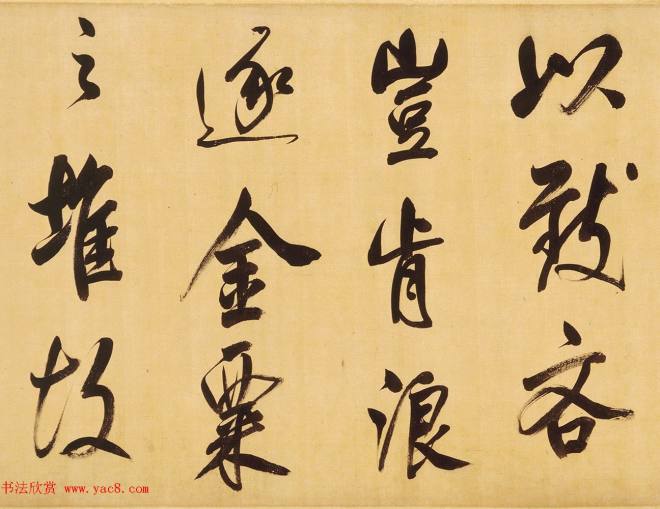 以致吝
豈肯浪
逐金粟
之堆故
书法欣赏 www.yac8.com